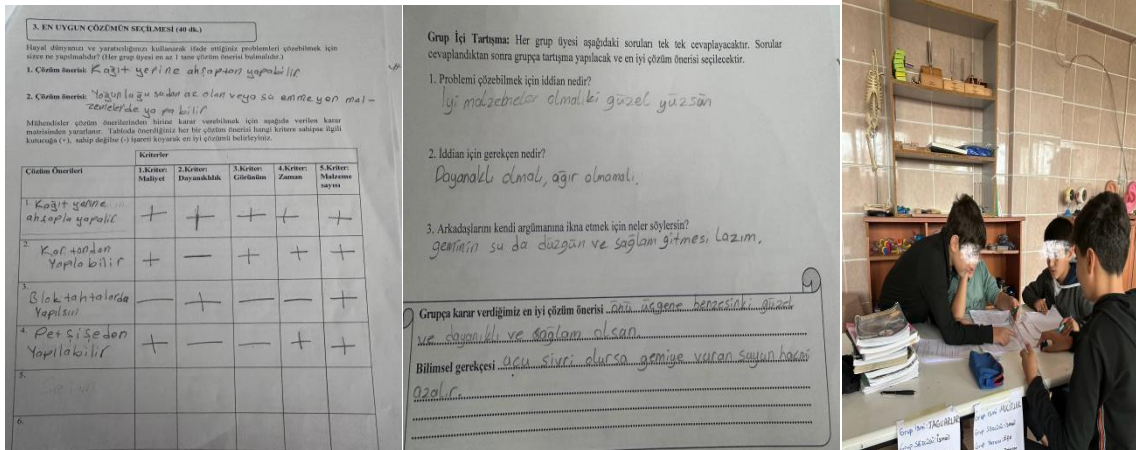 3. EN UYGUN ÇÖZÜMÜN SEÇİLMESİ (40 dk.)
Hayal dünyanızı ve yaratıcılığınızı kullanarak ifade ettiğiniz problemleri çözebilmek için
sizce ne yapılmalıdır? (Her grup üyesi en az 1 tane çözüm önerisi bulmalıdır.)
1. Çözüm önerisi: Kağıt yerine ahşaptan yapabilir
2. Çözüm önerisi: Yoğunluğu sudan az olan veya su emmeyen mal-
zemelerde yapabilir
Mühendisler çözüm önerilerinden birine karar verebilmek için aşağıda verilen karar
matrisinden yararlanır. Tabloda önerdiğiniz her bir çözüm önerisi hangi kritere sahipse ilgili
kutucuğa (+), sahip değilse (-) işareti koyarak en iyi çözümü belirleyiniz.
Kriterler
Çözüm Önerileri 1.Kriter: Maliyet 2.Kriter: Dayanıklılık 3.Kriter: Görünüm 4.Kriter: Zaman 5.Kriter: Malzeme sayısı
1. Kağıt yerine
ahşapla yapalir + + + + +
2. Kartondan
Yapılabilir + - + + +
3. Blok tahtalarda
Yapılsın - + - - +
4. Petşişeden
Yapılabilir + - - + +
5.
6.
Grup İçi Tartışma: Her grup üyesi aşağıdaki soruları tek tek cevaplayacaktır. Sorular
cevaplandıktan sonra grupça tartışma yapılacak ve en iyi çözüm önerisi seçilecektir.
1. Problemi çözebilmek için iddian nedir?
İyi malzemeler olmalıki güzel yüzsün
2. İddian için gerekçen nedir?
Dayanaklı olmalı, ağır olmamalı.
3. Arkadaşlarını kendi argümanına ikna etmek için neler söylersin?
geminin su da düzgün ve sağlam gitmesi lazım.
Grupça karar verdiğimiz en iyi çözüm önerisi önü üçgene benzesinki güzel
ve dayanıklı ve sağlam olsun
Bilimsel gerekçesi ucu sivri olursa gemiye vuran suyun hacmi
azalır.
Grup ismi: JAGUARLAR
Grup
Grup ismi:
Grup